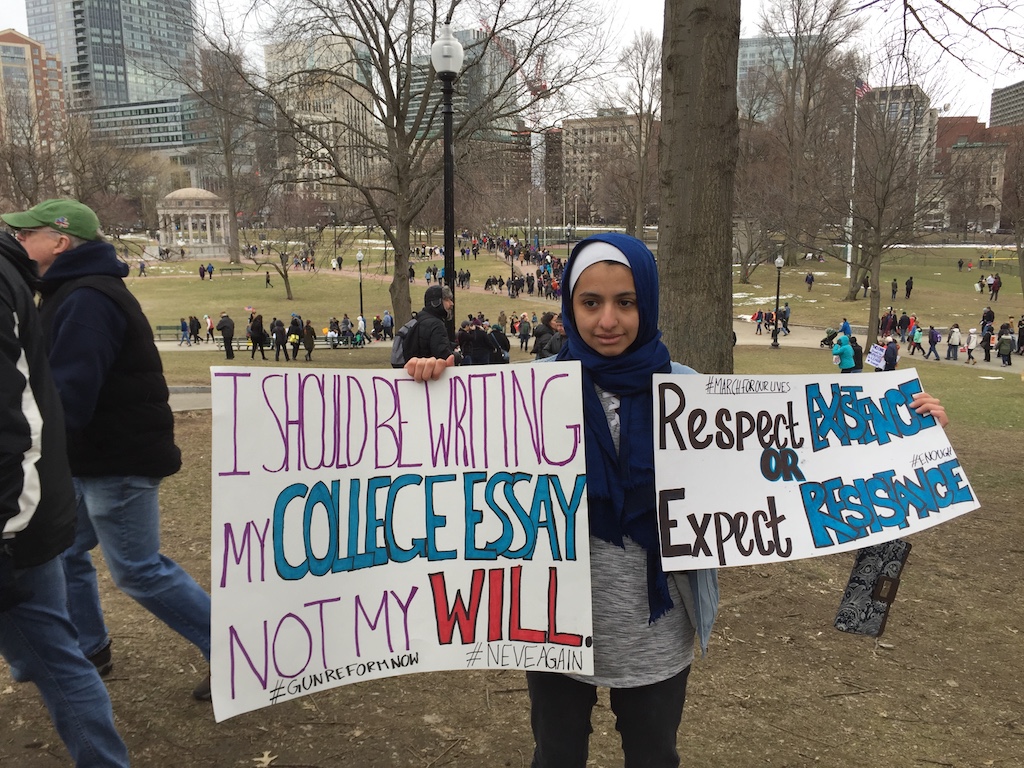 I SHOULD BE WRITING
MY COLLEGE ESSAY
NOT MY WILL.
#GUNREFORMNOW
#NEVEAGAIN
#MARCHFOROURLIVES
Respect EXISTENCE
OR
#ENOUGH
Expect RESISTANCE